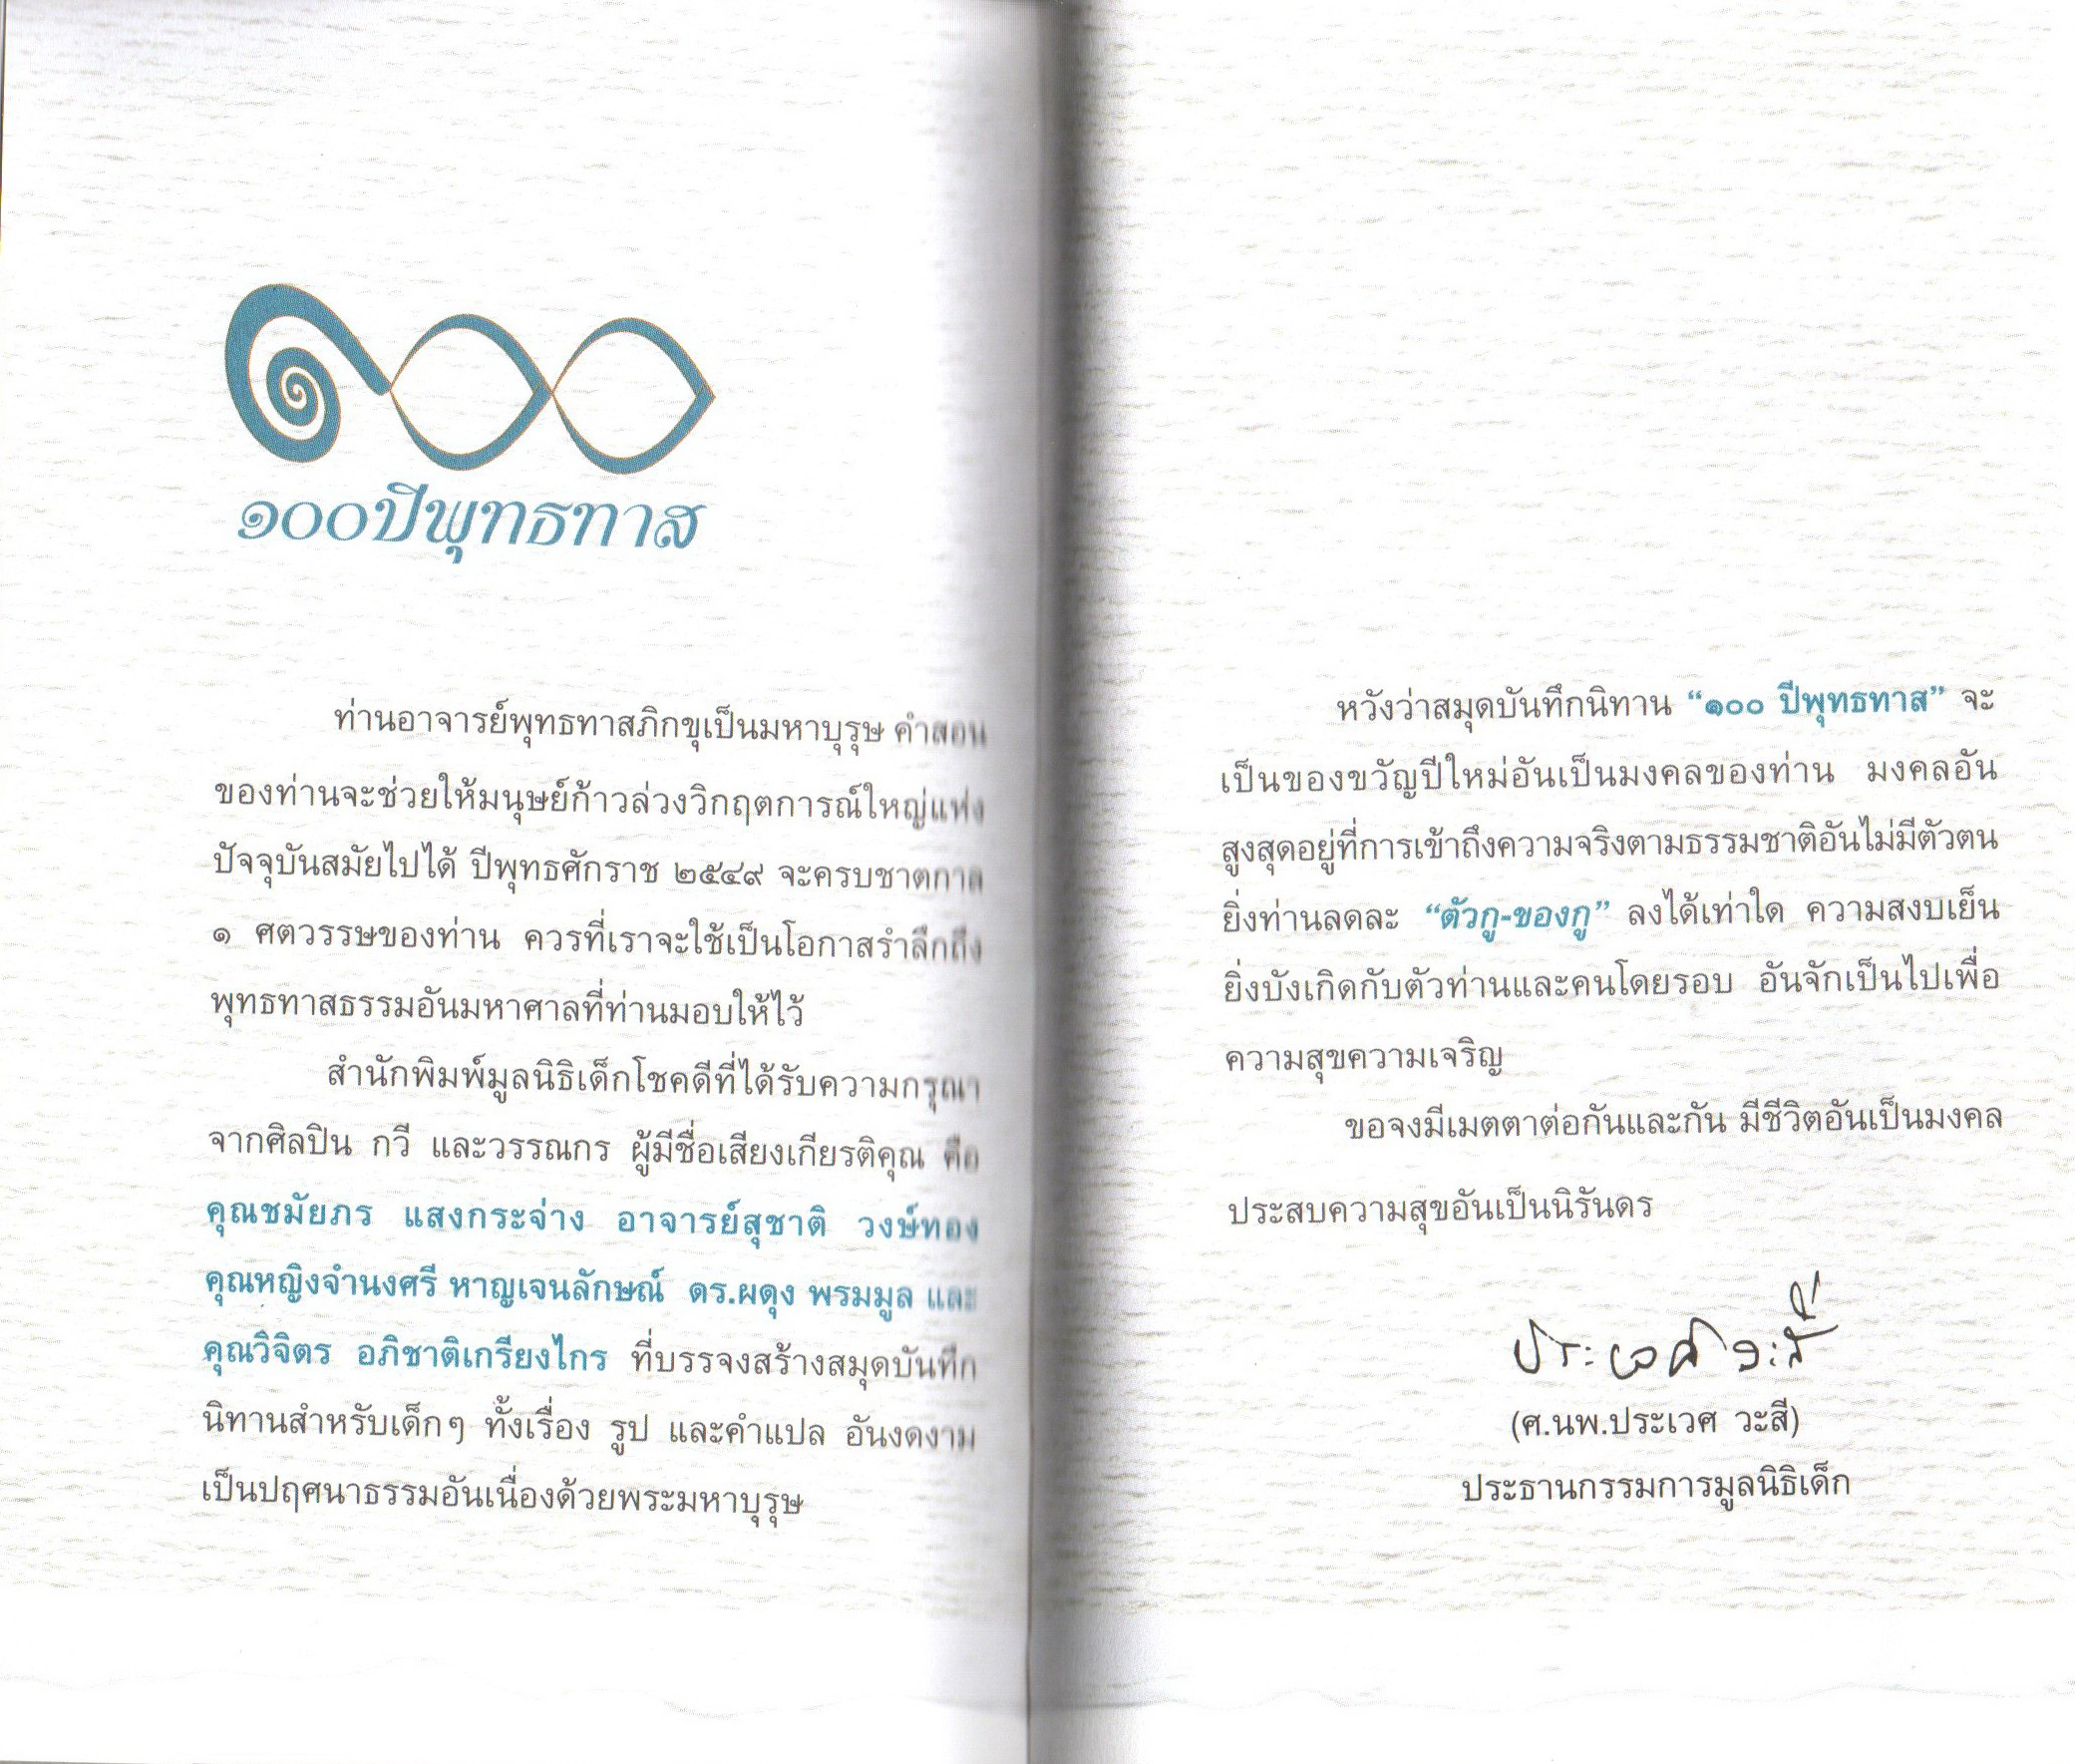 ๑๐๐
๑๐๐ปีพุทธทาส
ท่านอาจารย์พุทธทาสภิกขุเป็นมหาบุรุษ คำสอน
ของท่านจะช่วยให้มนุษย์ก้าวล่วงวิกฤตการณ์ใหญ่แห่ง
ปัจจุบันสมัยไปได้ ปีพุทธศักราช ๒๕๔๙ จะครบชาตกาล
๑ ศตวรรษของท่าน ควรที่เราจะใช้เป็นโอกาสรำลึกถึง
พุทธทาสธรรมอันมหาศาลที่ท่านมอบให้ไว้
สำนักพิมพ์มูลนิธิเด็กโชคดีที่ได้รับความกรุณา
จากศิลปิน กวี และวรรณกร ผู้มีชื่อเสียงเกียรติคุณ คือ
คุณชมัยภร แสงกระจ่าง อาจารย์สุชาติ วงษ์ทอง
คุณหญิงจำนงศรี หาญเจนลักษณ์ ดร.ผดุง พรมมูล และ
คุณวิจิตร อภิชาติเกรียงไกร ที่บรรจงสร้างสมุดบันทึก
นิทานสำหรับเด็กๆ ทั้งเรื่อง รูป และคำแปล อันงดงาม
เป็นปฤศนาธรรมอันเนื่องด้วยพระมหาบุรุษ
หวังว่าสมุดบันทึกนิทาน “๑๐๐ ปีพุทธทาส” จะ
เป็นของขวัญปีใหม่อันเป็นมงคลของท่าน มงคลอัน
สูงสุดอยู่ที่การเข้าถึงความจริงตามธรรมชาติอันไม่มีตัวตน
ยิ่งท่านลดละ “ตัวกู-ของกู” ลงได้เท่าใด ความสงบเย็น
ยิ่งบังเกิดกับตัวท่านและคนโดยรอบ อันจักเป็นไปเพื่อ
ความสุขความเจริญ
ขอจงมีเมตตาต่อกันและกัน มีชีวิตอันเป็นมงคล
ประสบความสุขอันเป็นนิรันดร
ประเวศ วะสี
(ศ.นพ.ประเวศ วะสี)
ประธานกรรมการมูลนิธิเด็ก